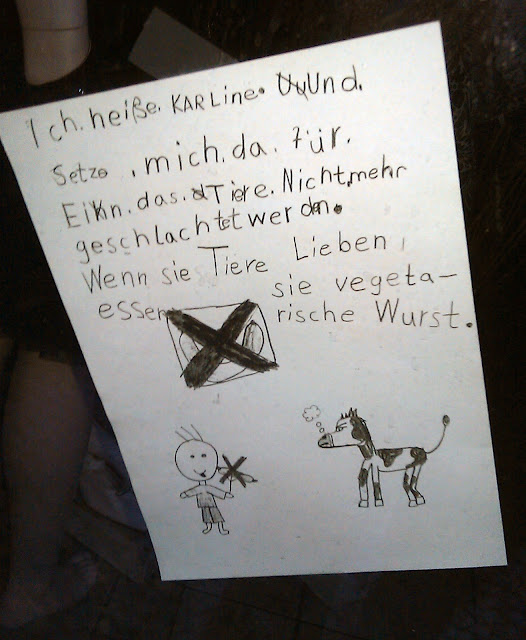 Ich.heiße.KARLine. Und.
Setze.mich.da.für.
Ein.das.Tiere.Nicht.mehr
geschlachtet werden.
Wenn sie Tiere Lieben,
essen sie vegeta-
rische Wurst.